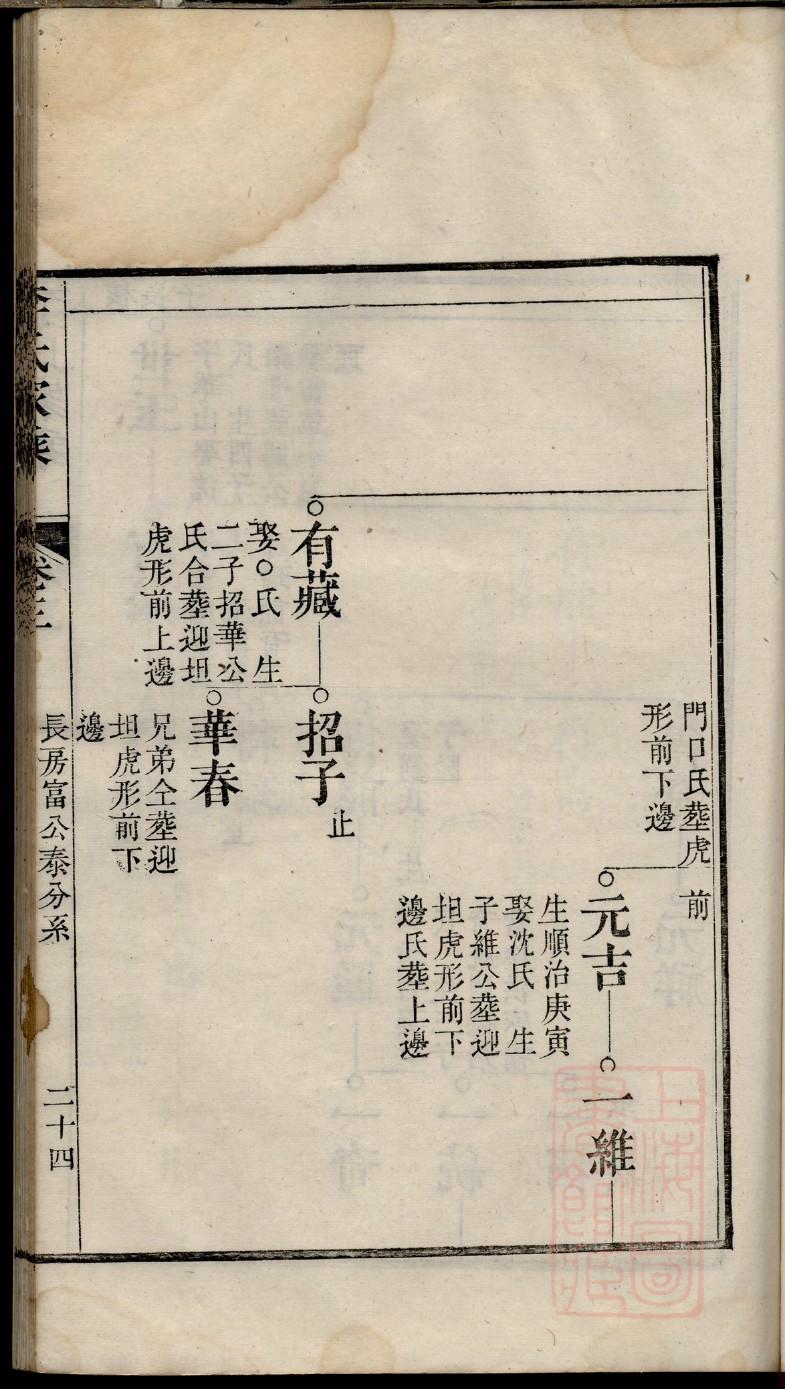 門口氏塟虎　前
形前下邊
元吉
生順治庚寅
娶沈氏　生
子維公塟迎
坦虎形前下
邊氏塟上邊
一維
有藏
娶○氏　生
二子招華公
氏合塟迎坦
虎形前上邊
招子
止
華春
兄弟仝塟迎
坦虎形前下
邊
卷三
長房富公泰分系
二十四
上海圖